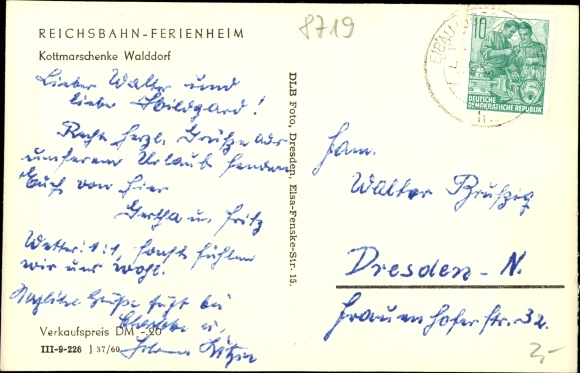 REICHSBAHN-FERIENHEIM
Kottmarschenke Walddorf
8719
Lieber Walter und
liebe Hildgard!
Recht herzl. Grüße aus
unserem Urlaub senden
Euch von hier
Gertha u. Fritz
Wetter i. t., sonst fühlen
wir uns wohl.
Grüße fügt bei
u.
Verkaufspreis DM -.20
III-9-226 J 37/60
DLB Foto, Dresden, Elsa-Fenske-Str. 15.
EIBAU
10
DEUTSCHE
DEMOKRATISCHE REPUBLIK
Fam.
Walter
Dresden - N.
Frauenhoferstr. 32.
2,-